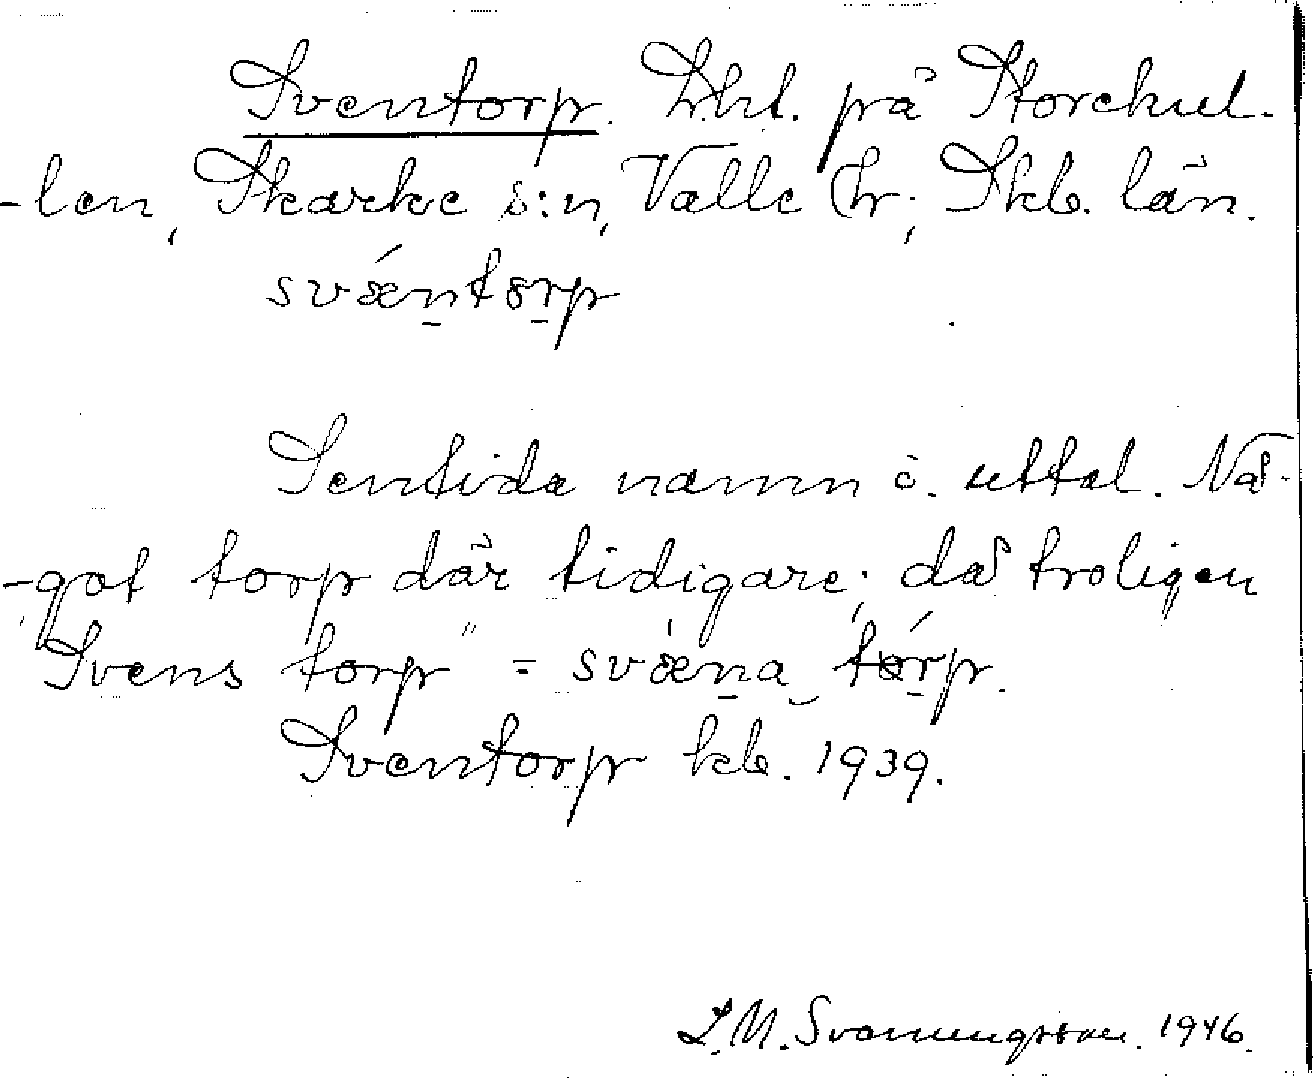 Sventorp. Lht. på Storekul-
-len, Skarke s:n, Valle hr; Skb. län.
svæntorp
Sentida namn o. uttal. Nå-
-got torp där tidigare; då troligen
"Svens torp" = svæna torp.
Sventorp kb. 1939.
L.M. Svanungsson. 1946.